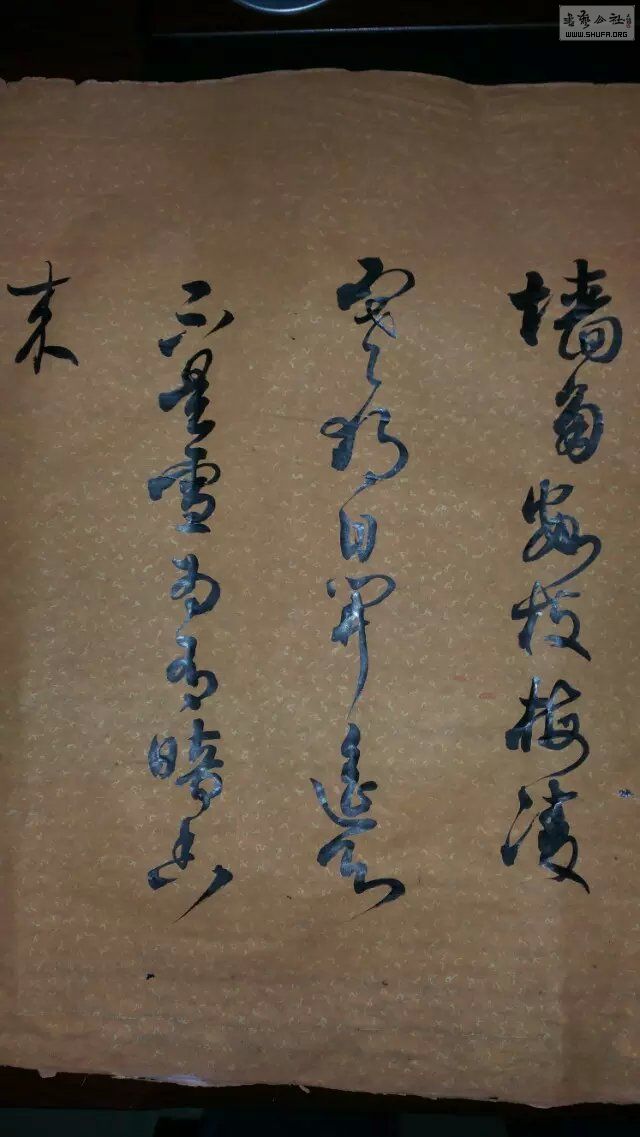 書藝公社
WWW.SHUFA.ORG
墙角数枝梅凌
寒独自開遥知
不是雪为有暗香
来